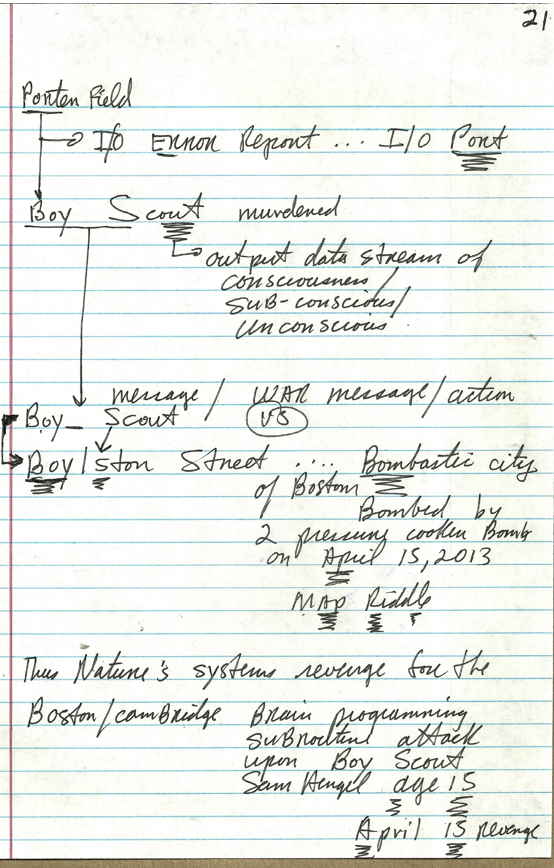 21
Porten Field
I/O Error Report ... I/O Port
Boy Scout murdered
output data stream of
consciousness/
SUB-conscious/
Unconscious
message / WAR message/action
Boy_ Scout VS
Boy/ston Street .... Bombastic city
of Boston
Bombed by
2 pressing cooker Bomb
on April 15, 2013
MAP Riddle
Thus Nature's systems revenge for the
Boston/camBridge Brain programming
subroutine attack
upon Boy Scout
Sam Hengel age 15
April 15 revenge